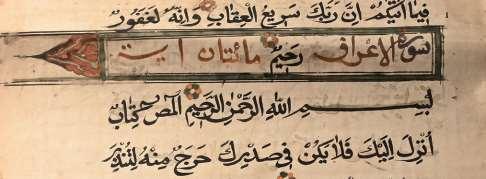 فِيمَا آتَيكُمْ إِنَّ رَبَّكَ سَرِيعُ الْعِقَابِ وَإِنَّهُ لَغَفُورٌ
سورة الاعراف رَحِيمٌ مائتان اية
بِسْمِ اللهِ الرَّحْمٰنِ الرَّحِيمِ الٓمٓصٓ كِتَابٌ
أُنْزِلَ إِلَيْكَ فَلَا يَكُنْ فِي صَدْرِكَ حَرَجٌ مِنْهُ لِتُنْذِرَ